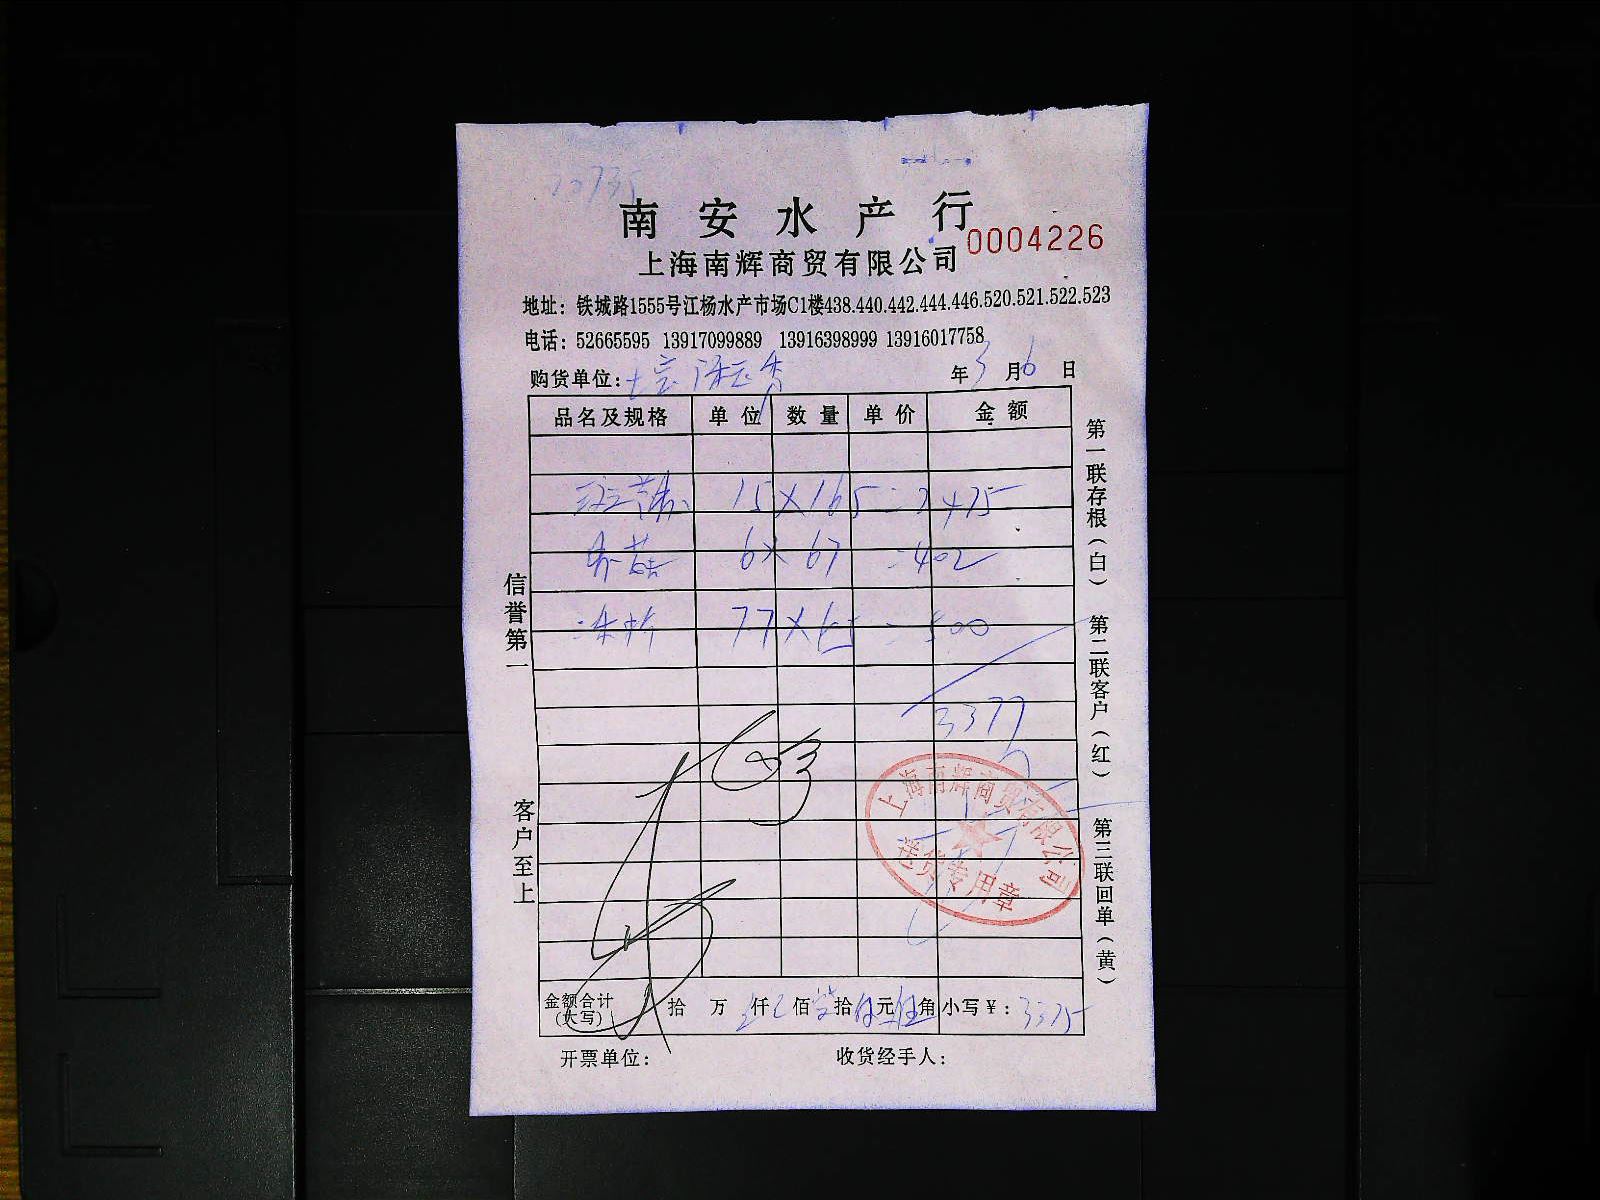 南安水产行
0004226
上海南辉商贸有限公司
地址：铁城路1555号江杨水产市场C1楼438.440.442.444.446.520.521.522.523
电话：52665595 13917099889 13916398999 13916017758
购货单位： 年3月6日
品名及规格 单位 数量 单价 金额
15×165=2475
6×67=402
7.7×65=500
3377
上海南辉商贸有限公司
送货专用章
金额合计(大写) 拾 万 仟 佰 拾 元 角 小写￥：3375
开票单位： 收货经手人：
信誉第一
客户至上
第一联存根（白）
第二联客户（红）
第三联回单（黄）